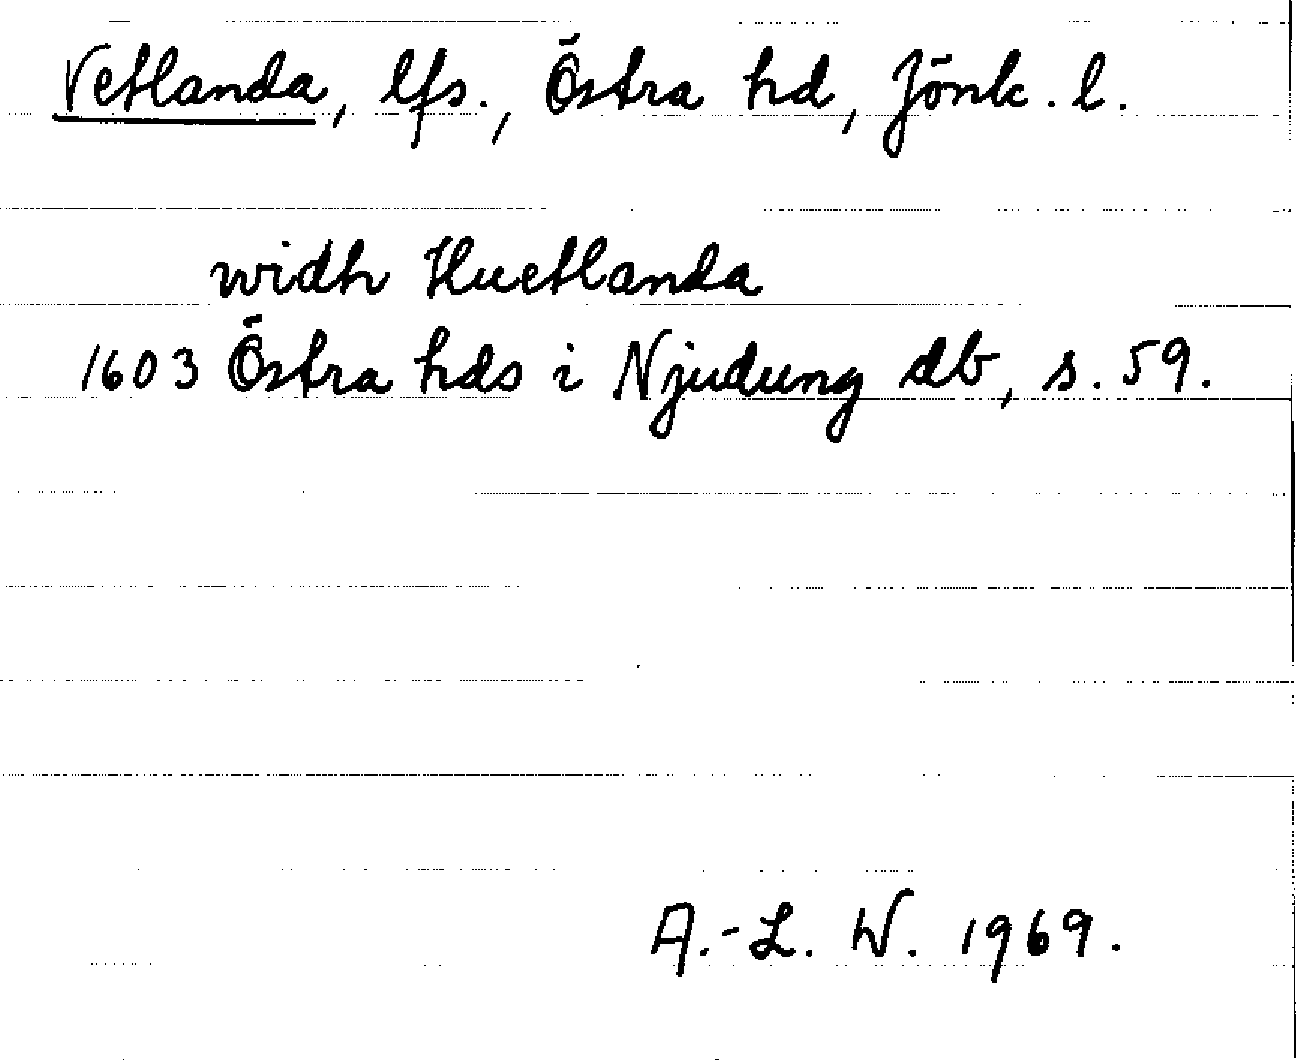 Vetlanda, lfs., Östra hd, Jönk. l.
widh Huetlanda
1603 Östra hds i Njudung db, s. 59.
A.-L. W. 1969.